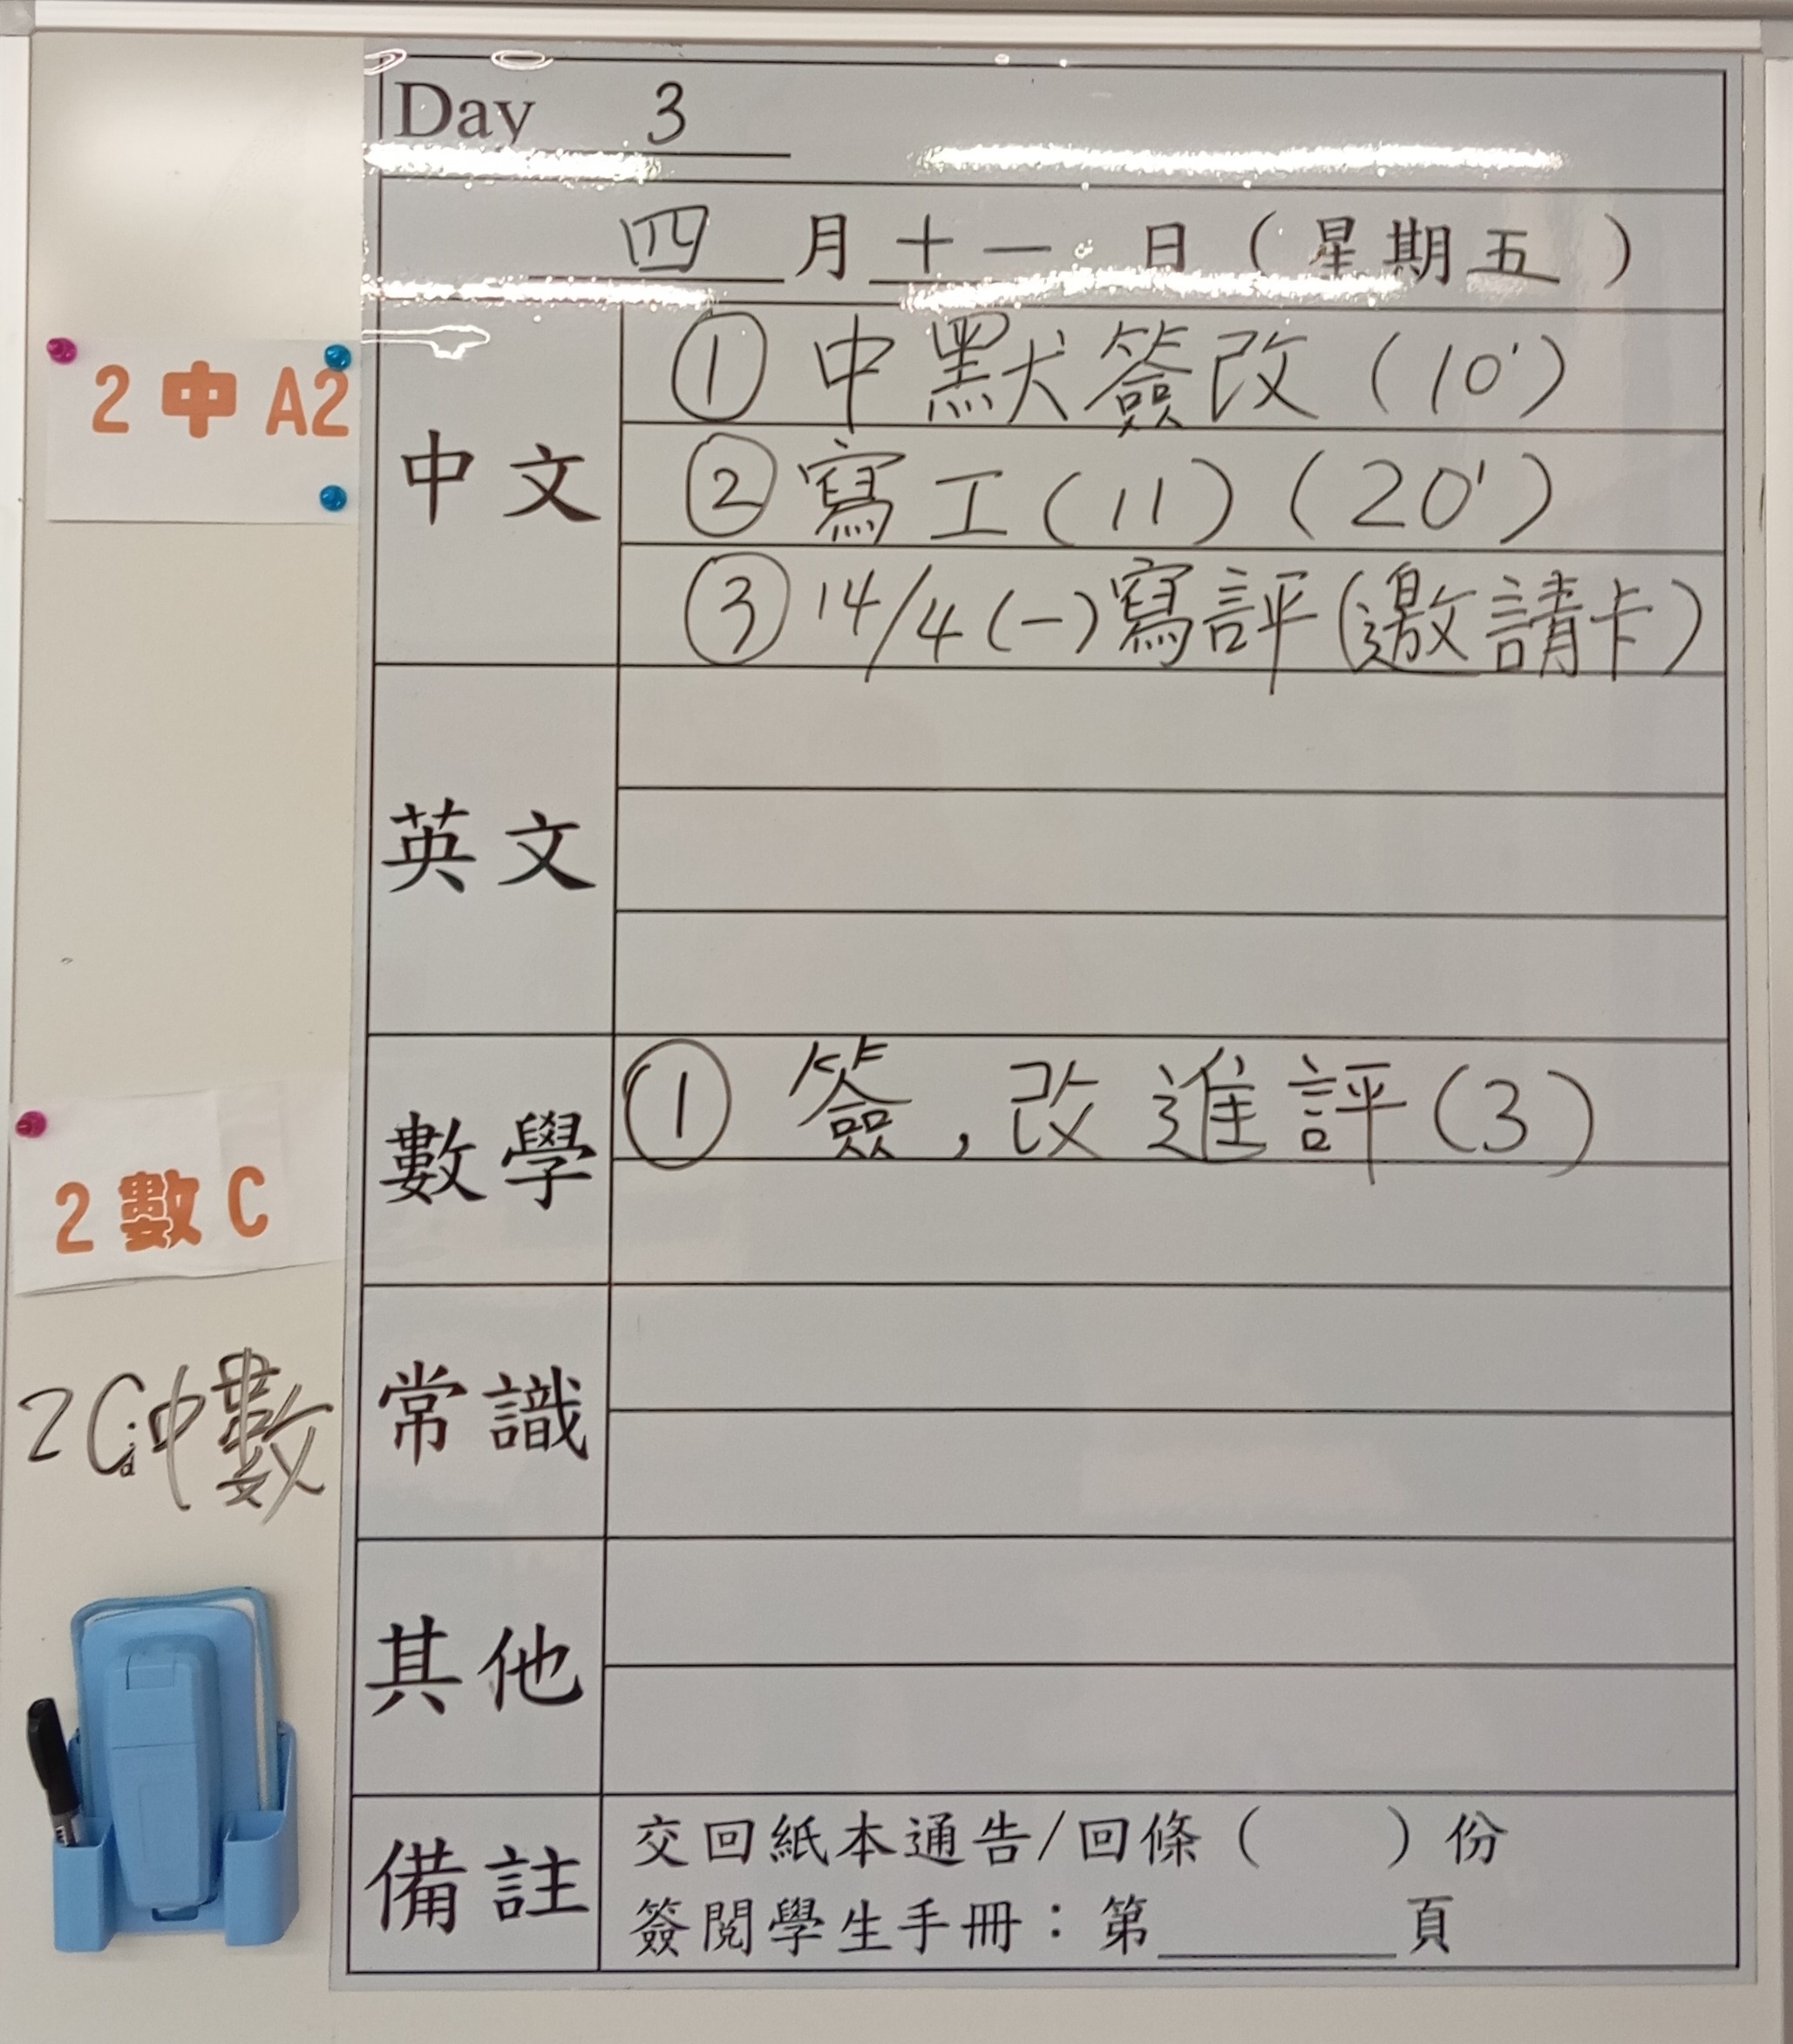 Day 3
四月十一日(星期五)
2中A2
中文
①中默簽改(10')
②寫工(11)(20')
③14/4(一)寫評(邀請卡)
英文
2數C
數學
①簽,改進評(3)
常識
其他
備註
交回紙本通告/回條( )份
簽閱學生手冊:第______頁